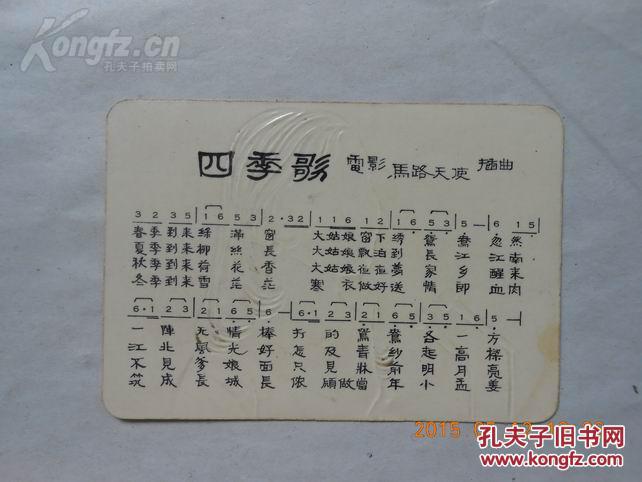 Kongfz.cn
孔夫子拍卖网
四季歌 電影 馬路天使 插曲
3 2 3 5 1 6 5 3 2 · 3 2 1 1 6 1 2 1 6 5 3 5 — 6 1 5
春季到来綠滿窗 大姑娘窗下綉鴛鴦 忽然
夏季到来柳絲長 大姑娘飘泊到長江 江南
秋季到来荷花香 大姑娘夜夜夢家乡 醒来
冬季到来雪茫茫 寒衣做好送情郎 血肉
一陣无情棒 打的鴛鴦各一方
江北風光好 怎及青紗起高樑
不見爹娘面 只見牀前明月亮
筑成長城長 侬願做當年小孟姜
2015
孔夫子旧书网
www.kongfz.com